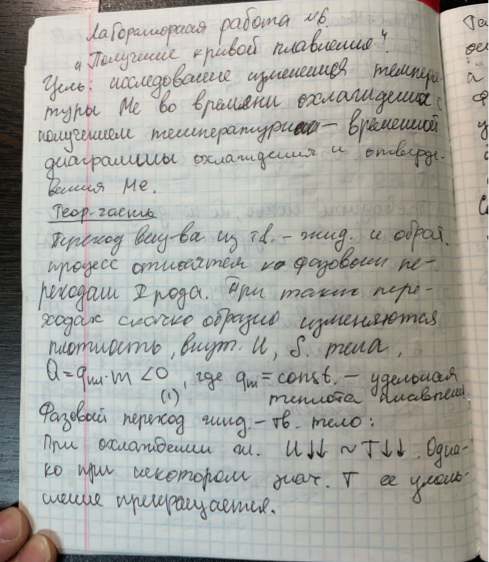 Лабораторная работа №6
„Получение кривой плавления".
Цель: исследование изменения темпера-
туры Ме во времени охлаждения с
получением температурно – временной
диаграммы охлаждения и отверде-
вания Ме.
Теор. часть
Переход вещ-ва из тв. – жид. и обрат.
процесс относятся ко фазовым пе-
реходам I рода. При таких пере-
ходах скачко образно изменяются
плотность, внут. U, S тела.
Q = qпл·m < 0, где qпл = const. – удельная
(1) теплота плавления
Фазовый переход жид. – тв. тело:
При охлаждении ж. U↓↓ ~ T↓↓. Одна-
ко при некотором знач. T ее умень-
шение прекращается.